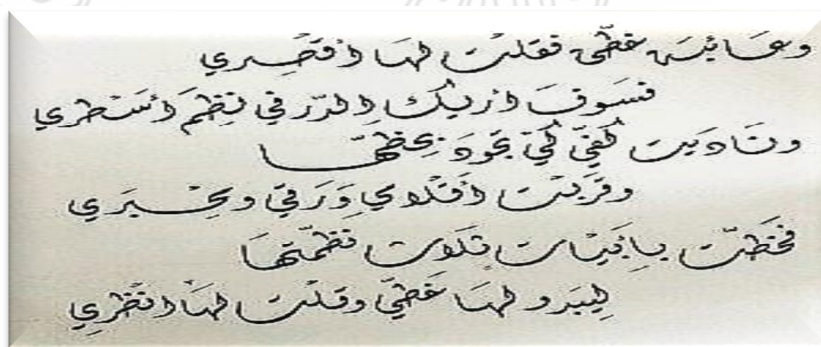 وعائبة خطي فقلت لها اقصري
فسوف اريك الدر في نظم أسطري
وناديت كفي كي يجود بخطها
وقربت أقلامي ورقي ومحبري
فخطت بأبيات ثلاث نظمتها
ليبدو لها خطي وقلت لها انظري